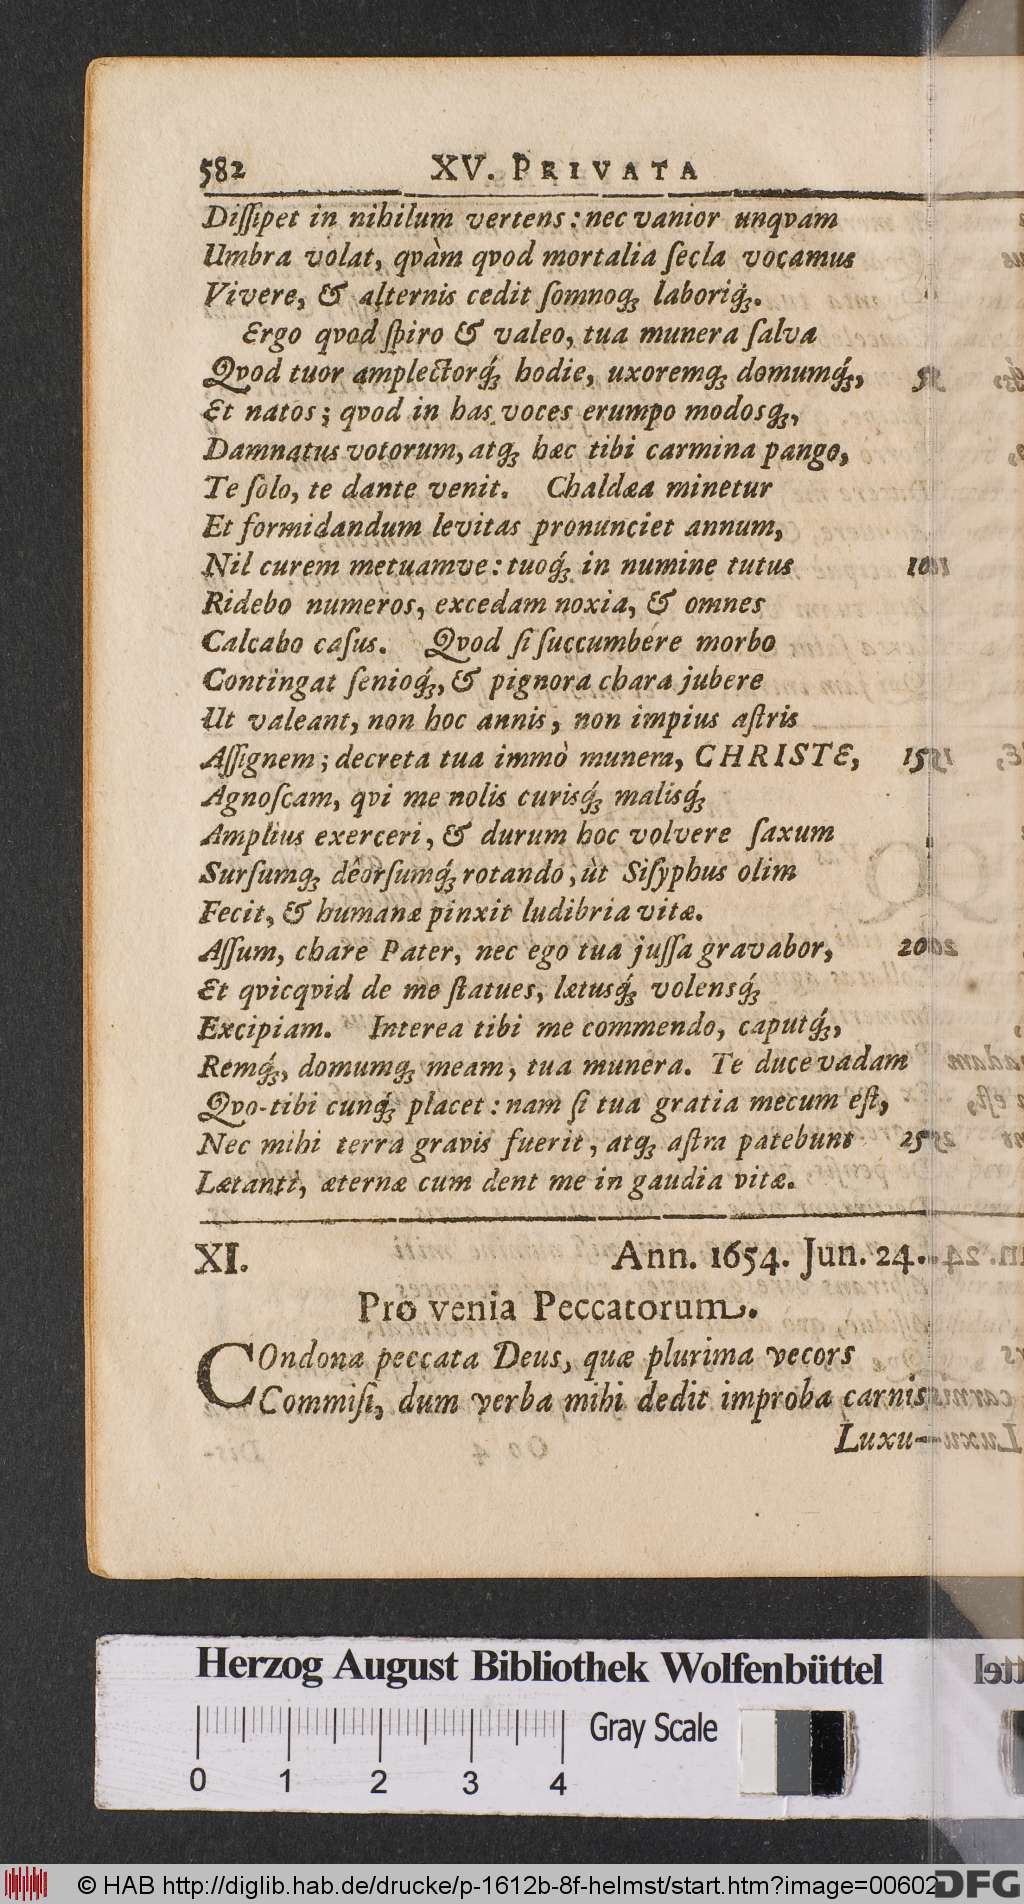 582 XV. PRIVATA
Diſſipet in nihilum vertens: nec vanior unqvam
Umbra volat, qvàm qvod mortalia ſecla vocamus
Vivere, & alternis cedit ſomnoq́; laboriq́;.
Ergo qvod ſpiro & valeo, tua munera ſalva
Qvod tuor amplectorq́; hodie, uxoremq; domumq́;, 5
Et natos; qvod in has voces erumpo modosq;,
Damnatus votorum, atq; hæc tibi carmina pango,
Te ſolo, te dante venit. Chaldæa minetur
Et formidandum levitas pronunciet annum,
Nil curem metuamve: tuoq́; in numine tutus 10
Ridebo numeros, excedam noxia, & omnes
Calcabo caſus. Qvod ſi ſuccumbere morbo
Contingat ſenioq́;, & pignora chara jubere
Ut valeant, non hoc annis, non impius aſtris
Aſſignem; decreta tua immò munera, CHRISTE, 15
Agnoſcam, qvi me nolis curisq́; malisq́;
Amplius exerceri, & durum hoc volvere ſaxum
Surſumq; dêorſumq́; rotando, ùt Siſyphus olim
Fecit, & humanæ pinxit ludibria vitæ.
Aſſum, chare Pater, nec ego tua juſſa gravabor, 20
Et qvicqvid de me ſtatues, lætusq́; volensq́;
Excipiam. Interea tibi me commendo, caputq́;,
Remq́;, domumq; meam, tua munera. Te duce vadam
Qvo-tibi cunq́; placet: nam ſi tua gratia mecum eſt,
Nec mihi terra gravis fuerit, atq; aſtra patebunt 25
Lætanti, æternæ cum dent me in gaudia vitæ.
XI. Ann. 1654. Jun. 24.
Pro venia Peccatorum.
COndona peccata Deus, quæ plurima vecors
Commiſi, dum verba mihi dedit improba carnis
Luxu-
Herzog August Bibliothek Wolfenbüttel
Gray Scale
0 1 2 3 4
© HAB http://diglib.hab.de/drucke/p-1612b-8f-helmst/start.htm?image=00602
DFG